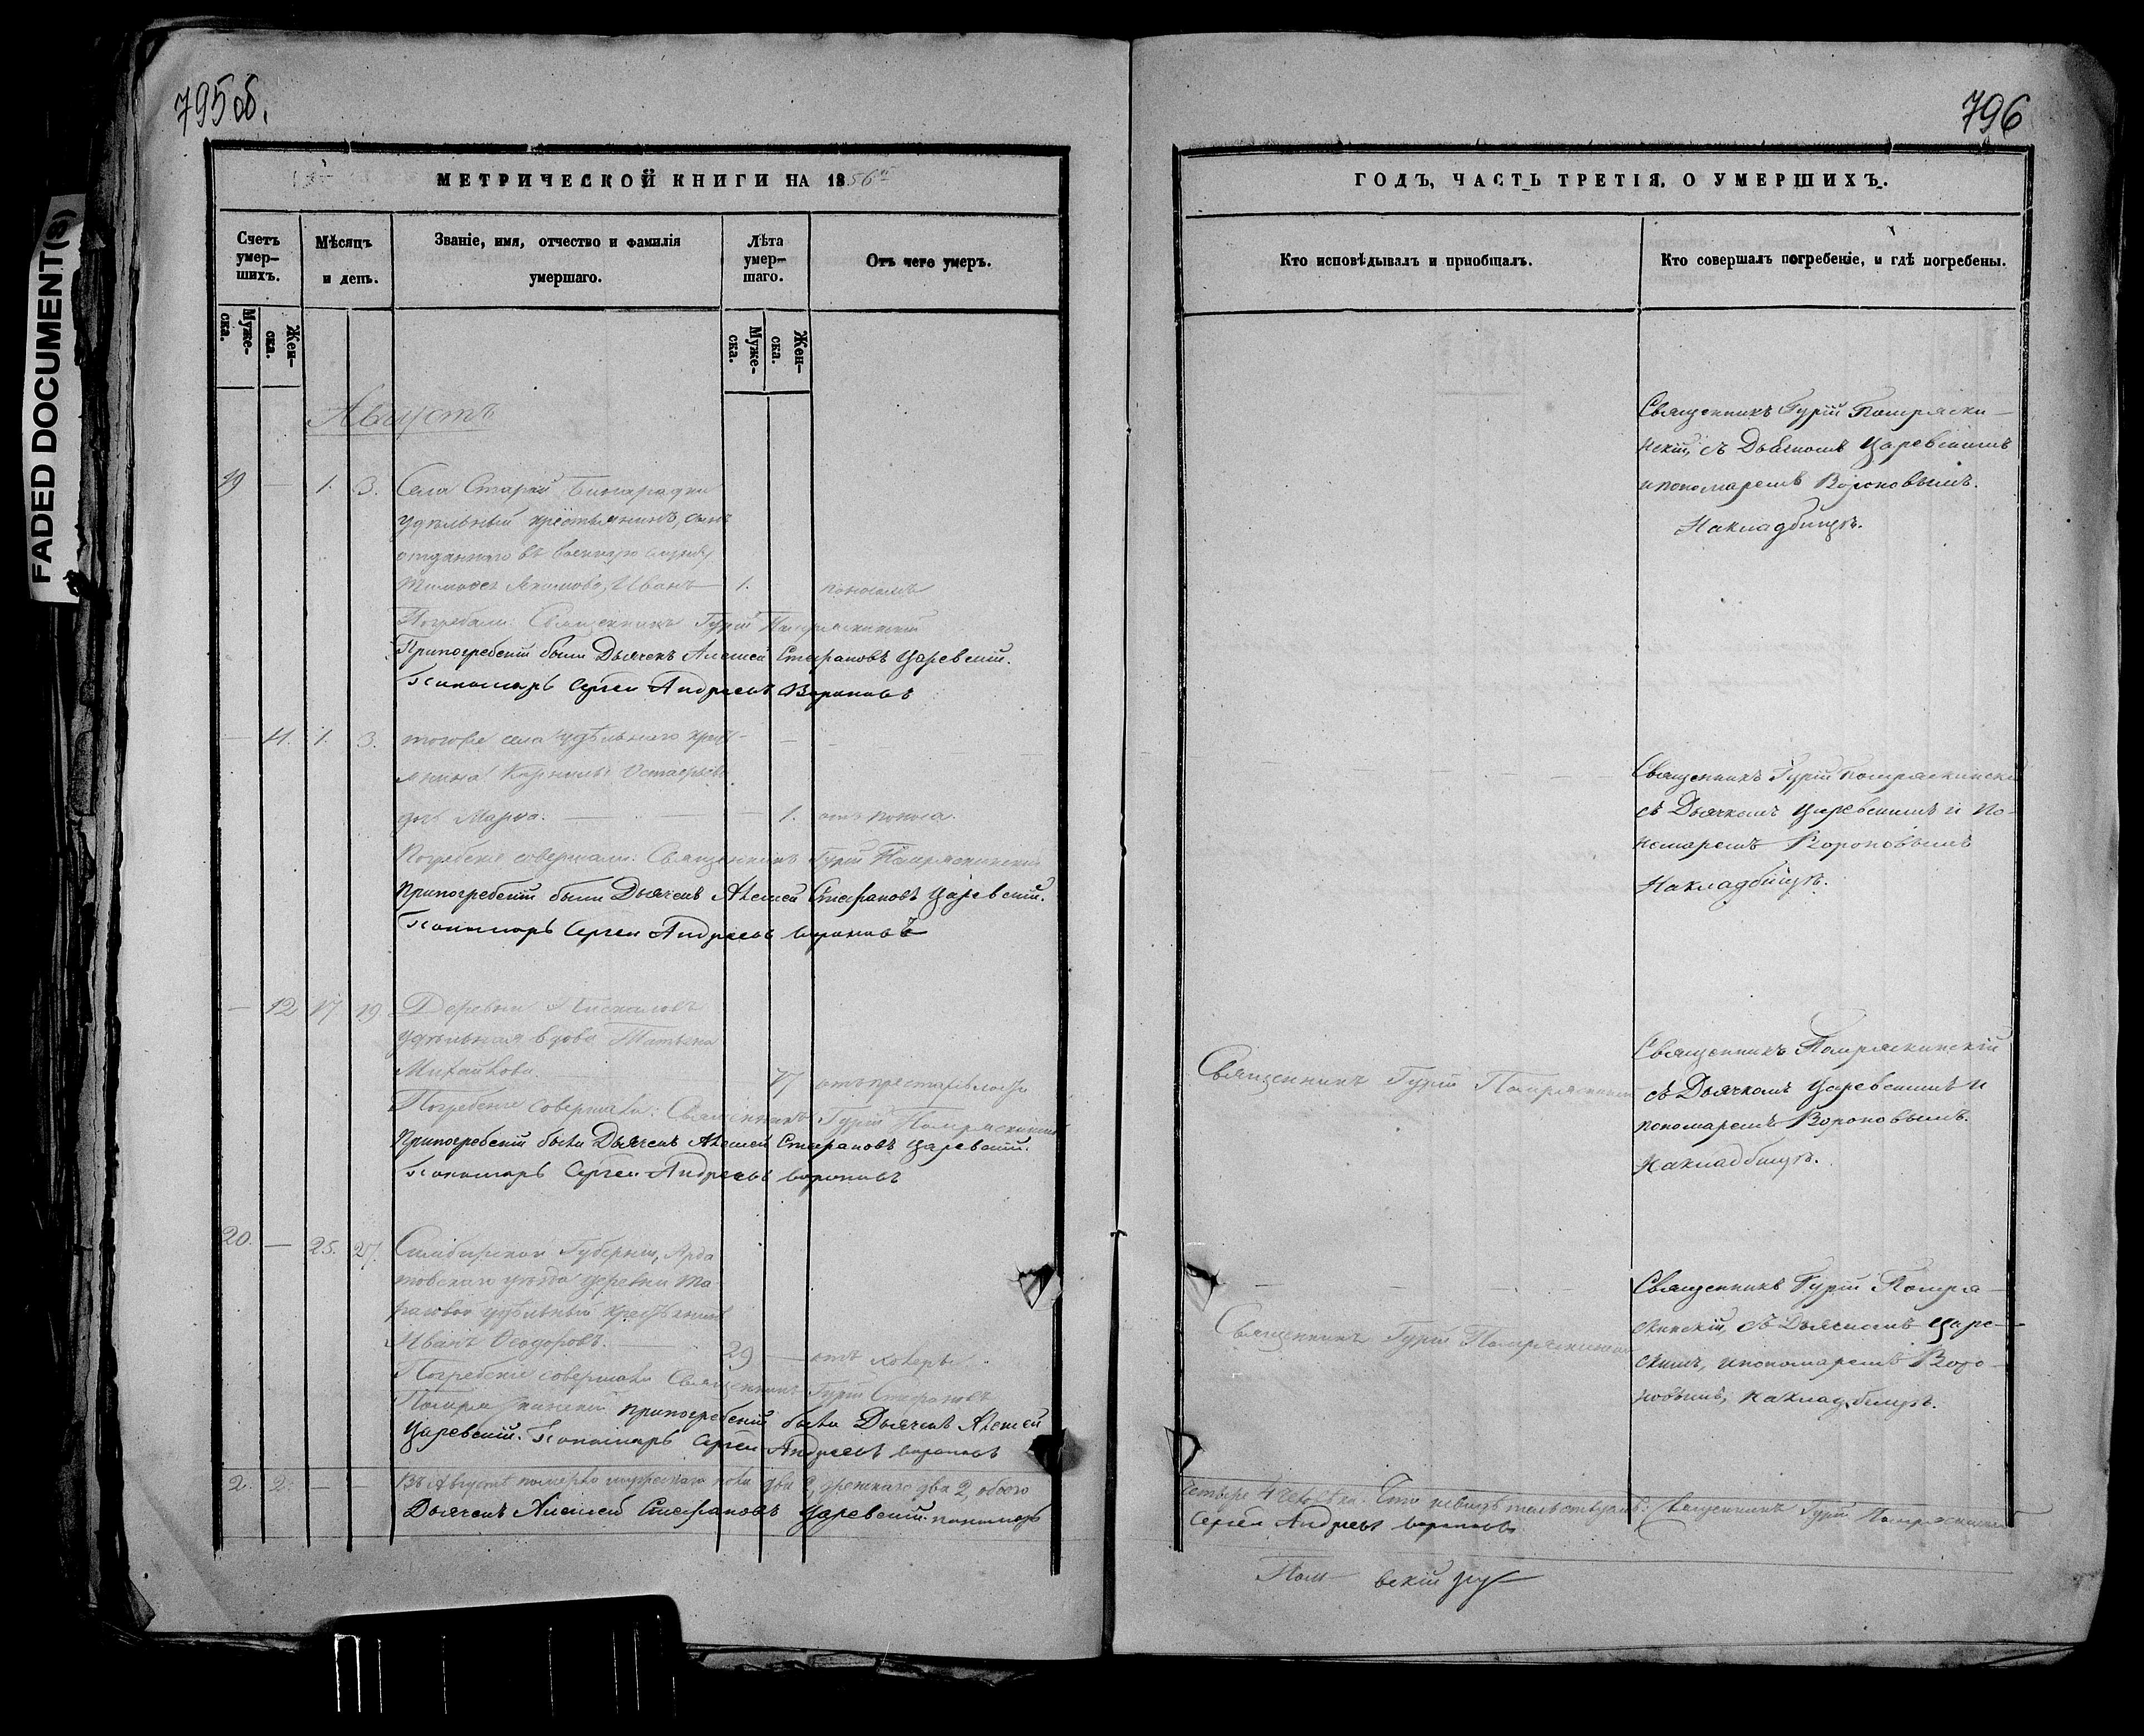 795 об.
796
FADED DOCUMENT(S)
МЕТРИЧЕСКОЙ КНИГИ НА 1856
Счетъ умер-
шихъ.
Муже-
ска.
Жен-
ска.
Мѣсяцъ
и день.
Званіе, имя, отчество и фамилія
умершаго.
Лѣта
умер-
шаго.
Муже-
ска.
Жен-
ска.
Отъ чего умеръ.
Августъ
19 — 1. 3. Села Старой Бинарадки
удѣльный крестьянинъ, сынъ
отданнаго въ военную службу
Иванъ 1. поносомъ
Погребали: Священникъ Гурій Помряскинскій
Припогребеніи были Дьячекъ Алексей Стефановъ Царевскій.
Пономарь Сергей Андреевъ Вороновъ
— 11. 1. 3. тогоже села удѣльнаго крес-
дочь Марѳа. 1. отъ поноса.
Погребеніе совершали: Священникъ Гурій Помряскинскій
припогребеніи были Дьячекъ Алексей Стефановъ Царевскій.
Пономарь Сергей Андреевъ Вороновъ
— 12 17 19 Деревни
удѣльная вдова Татьяна
Михайлова. 77 отъ престарѣлости
Погребеніе совершали: Священникъ Гурій Помряскинскій
Припогребеніи были Дьячекъ Алексей Стефановъ Царевскій.
Пономарь Сергей Андреевъ Вороновъ
20. — 25. 27. Симбирской Губерніи, Арда
товскаго уѣзда деревни
удѣльный крестьянинъ
Иванъ Ѳеодоровъ. 29 — отъ холеры.
Погребеніе совершали Священникъ Гурій Стефановъ
Помряскинскій припогребеніи были Дьячекъ Алексей
Царевскій. Пономарь Сергей Андреевъ Вороновъ
2. 2. — — Въ Августѣ померло мужескаго пола два 2, женскаго два 2, обоего
Дьячекъ Алексей Стефановъ Царевскій. пономарь
ГОДЪ, ЧАСТЬ ТРЕТІЯ, О УМЕРШИХЪ.
Кто исповѣдывалъ и пріобщалъ.
Кто совершалъ погребеніе, и гдѣ погребены.
Священникъ Гурій Помряски-
нскій, съ Дьячкомъ Царевскимъ
и пономаремъ Вороновымъ.
На кладбищѣ.
Священникъ Гурій Помряскинскій
съ Дьячкомъ Царевскимъ и По-
номаремъ Вороновымъ
На кладбищѣ.
Священникъ Гурій Помряскинскій
Священникъ Помряскинскій
съ Дьячкомъ Царевскимъ и
пономаремъ Вороновымъ.
На кладбищѣ.
Священникъ Гурій Помряскинскій
Священникъ Гурій Помря-
скинскій, съ Дьячкомъ Царе-
скимъ, и пономаремъ Воро-
новымъ, на кладбищѣ.
четыре 4 человѣка. Священникъ Гурій Помряскинскій
Сергей Андреевъ Вороновъ